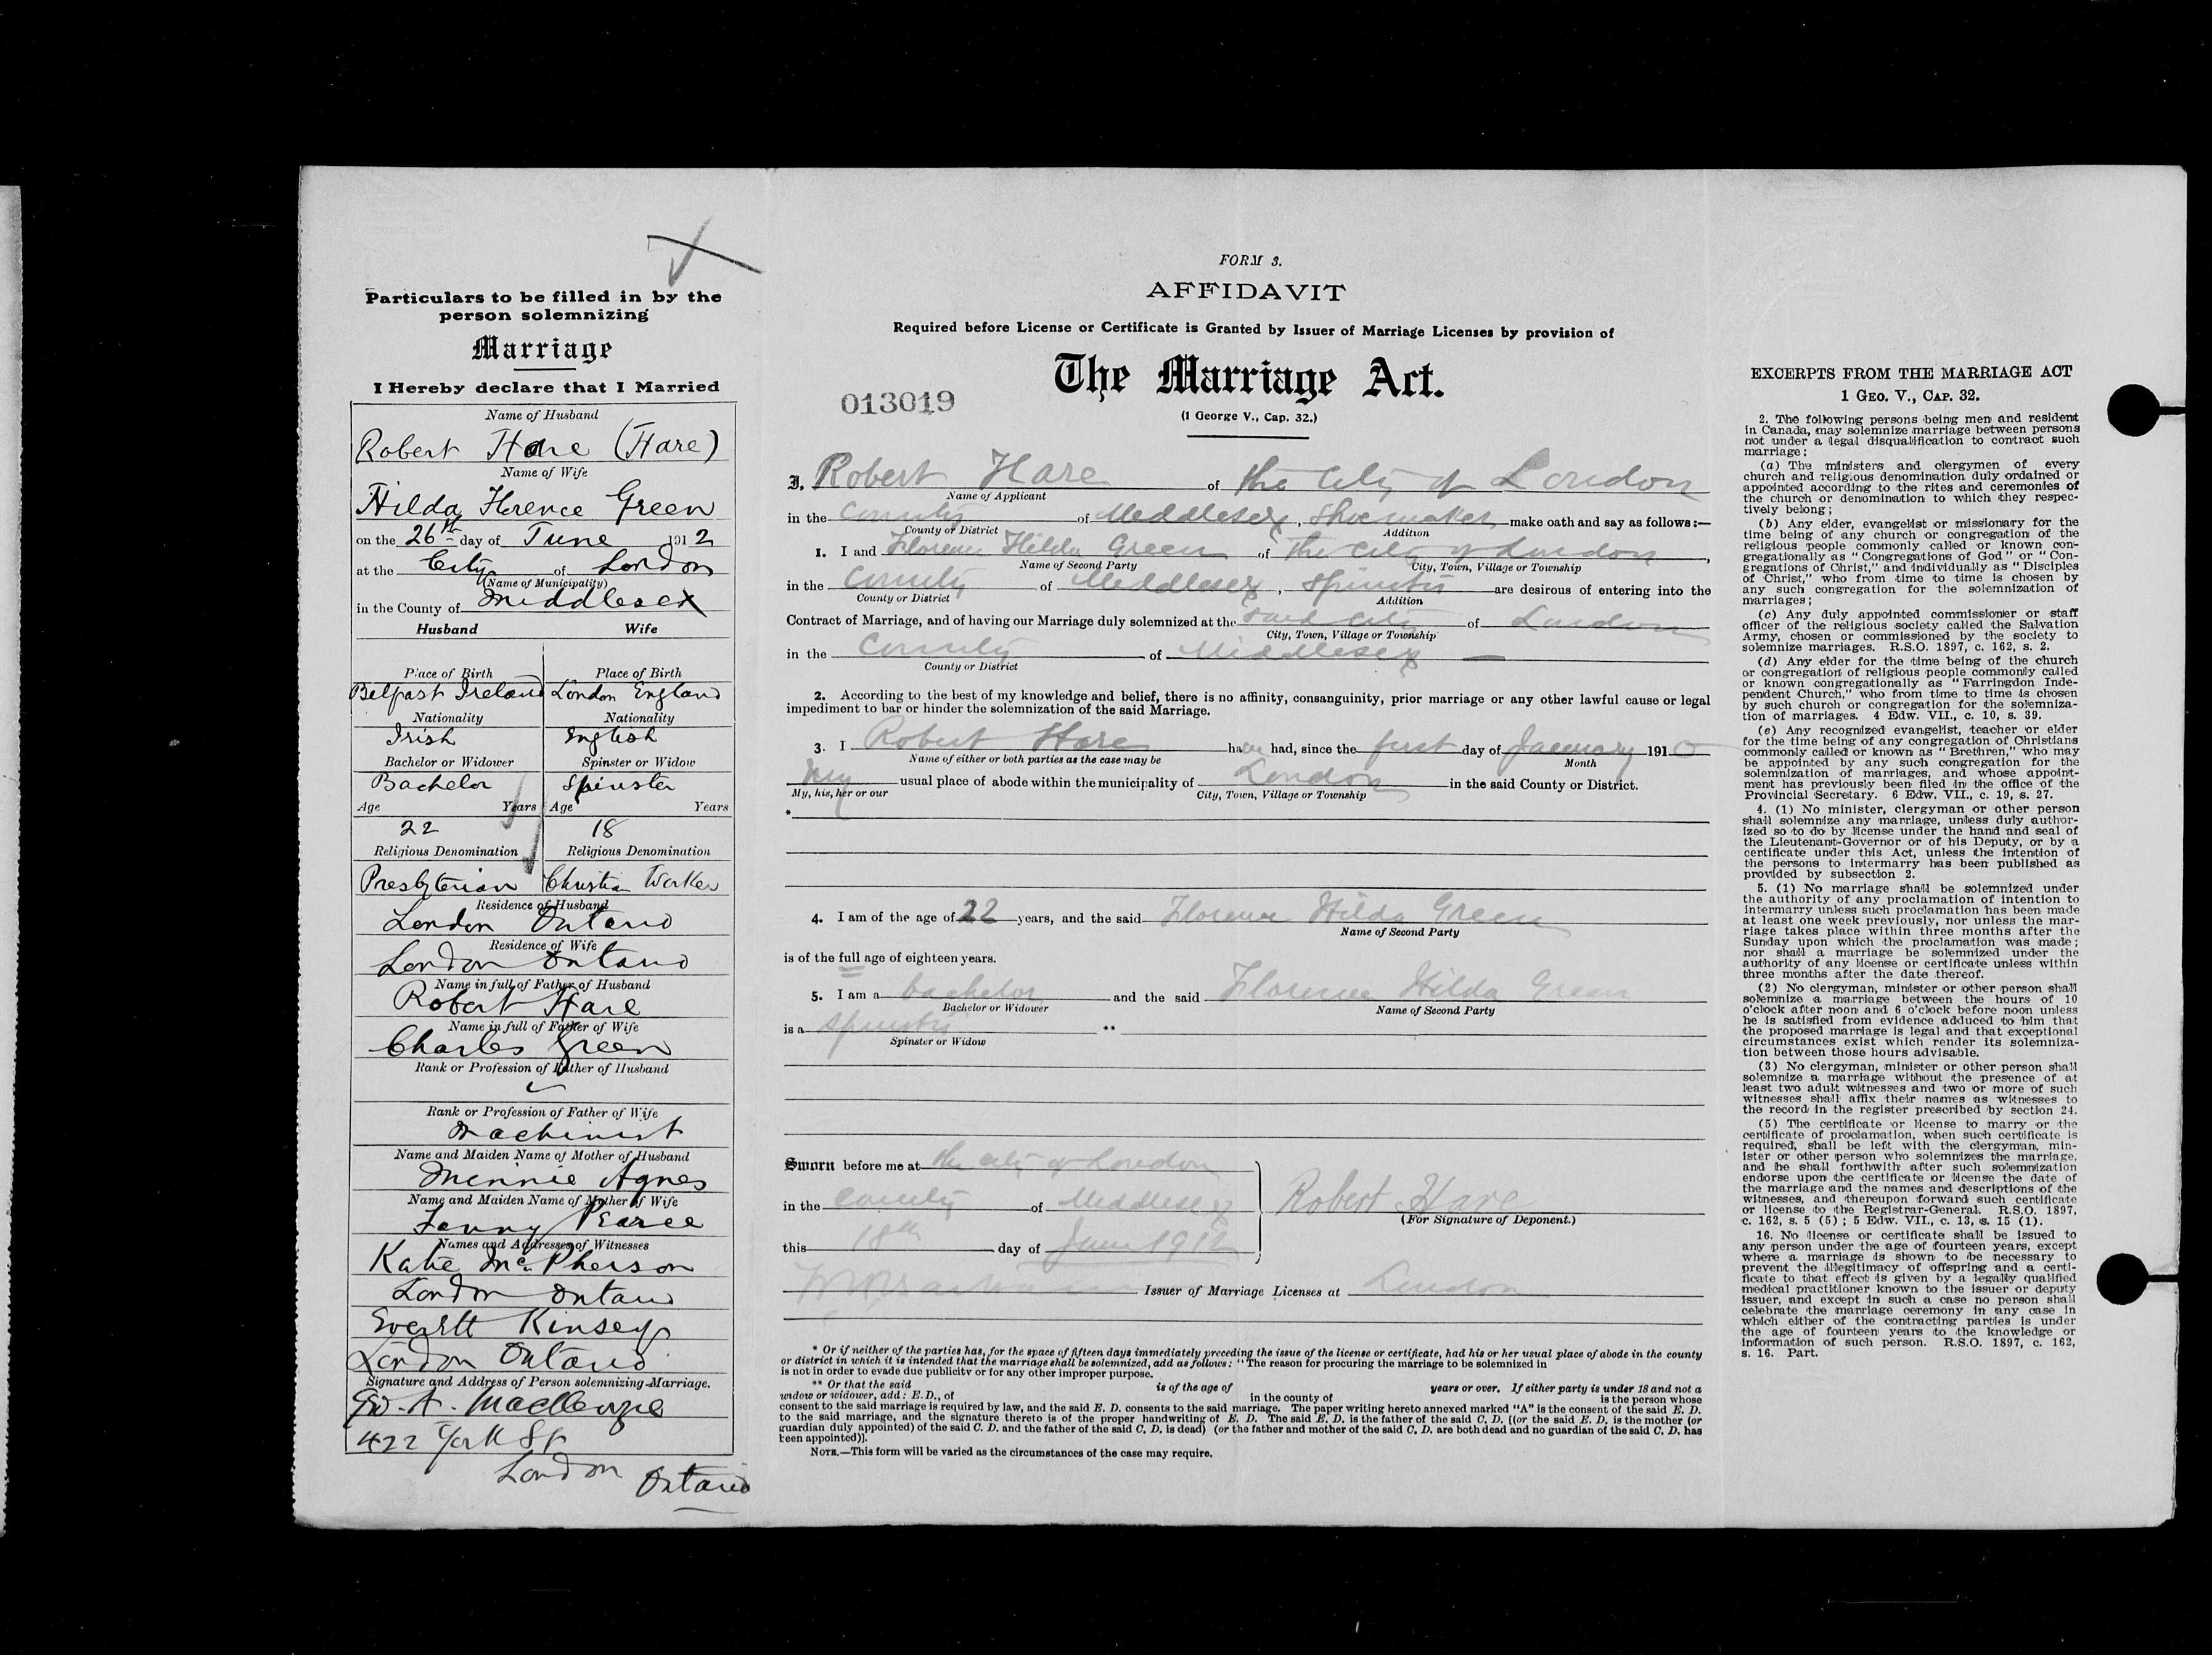 Particulars to be filled in by the
person solemnizing
Marriage
I Hereby declare that I Married
Name of Husband
Robert Hare (Hare)
Name of Wife
Hilda Florence Green
on the 26th day of June 1912
at the City of London
(Name of Municipality)
in the County of Middlesex
Husband Wife
Place of Birth Place of Birth
Belfast Ireland London England
Nationality Nationality
Irish English
Bachelor or Widower Spinster or Widow
Bachelor Spinster
Age Years Age Years
22 18
Religious Denomination Religious Denomination
Presbyterian Christian Worker
Residence of Husband
London Ontario
Residence of Wife
London Ontario
Name in full of Father of Husband
Robert Hare
Name in full of Father of Wife
Charles Green
Rank or Profession of Father of Husband
Rank or Profession of Father of Wife
Machinist
Name and Maiden Name of Mother of Husband
Minnie Agnes
Name and Maiden Name of Mother of Wife
Fanny Pearce
Names and Addresses of Witnesses
Katie McPherson
London Ontario
Everett Kinsey
London Ontario
Signature and Address of Person solemnizing Marriage.
Gw. A. MacKenzie
422 York St
London Ontario
FORM 3.
AFFIDAVIT
Required before License or Certificate is Granted by Issuer of Marriage Licenses by provision of
The Marriage Act.
013019
(1 George V., Cap. 32.)
I, Robert Hare of the City of London
Name of Applicant
in the County of Middlesex, Shoemaker make oath and say as follows:—
County or District Addition
1. I and Florence Hilda Green of the City of London,
Name of Second Party City, Town, Village or Township
in the County of Middlesex, Spinster are desirous of entering into the
County or District Addition
Contract of Marriage, and of having our Marriage duly solemnized at the said City of London
City, Town, Village or Township
in the County of Middlesex —
County or District
2. According to the best of my knowledge and belief, there is no affinity, consanguinity, prior marriage or any other lawful cause or legal
impediment to bar or hinder the solemnization of the said Marriage.
3. I Robert Hare have had, since the first day of January 1910
Name of either or both parties as the case may be Month
My usual place of abode within the municipality of London in the said County or District.
My, his, her or our City, Town, Village or Township
*
4. I am of the age of 22 years, and the said Florence Hilda Green
Name of Second Party
is of the full age of eighteen years.
5. I am a bachelor and the said Florence Hilda Green
Bachelor or Widower Name of Second Party
is a spinster **
Spinster or Widow
Sworn before me at the City of London
in the County of Middlesex
Robert Hare
(For Signature of Deponent.)
this 18th day of June 1912
Issuer of Marriage Licenses at London
* Or if neither of the parties has, for the space of fifteen days immediately preceding the issue of the license or certificate, had his or her usual place of abode in the county
or district in which it is intended that the marriage shall be solemnized, add as follows: "The reason for procuring the marriage to be solemnized in
is not in order to evade due publicity or for any other improper purpose.
** Or that the said is of the age of years or over. If either party is under 18 and not a
widow or widower, add: E.D., of in the county of is the person whose
consent to the said marriage is required by law, and the said E. D. consents to the said marriage. The paper writing hereto annexed marked "A" is the consent of the said E. D.
to the said marriage, and the signature thereto is of the proper handwriting of E. D. The said E. D. is the father of the said C. D. [(or the said E. D. is the mother (or
guardian duly appointed) of the said C. D. and the father of the said C. D. is dead) (or the father and mother of the said C. D. are both dead and no guardian of the said C. D. has
been appointed)].
NOTE.—This form will be varied as the circumstances of the case may require.
EXCERPTS FROM THE MARRIAGE ACT
1 GEO. V., CAP. 32.
2. The following persons being men and resident
in Canada, may solemnize marriage between persons
not under a legal disqualification to contract such
marriage:
(a) The ministers and clergymen of every
church and religious denomination duly ordained or
appointed according to the rites and ceremonies of
the church or denomination to which they respec-
tively belong;
(b) Any elder, evangelist or missionary for the
time being of any church or congregation of the
religious people commonly called or known con-
gregationally as "Congregations of God" or "Con-
gregations of Christ," and individually as "Disciples
of Christ," who from time to time is chosen by
any such congregation for the solemnization of
marriages;
(c) Any duly appointed commissioner or staff
officer of the religious society called the Salvation
Army, chosen or commissioned by the society to
solemnize marriages. R.S.O. 1897, c. 162, s. 2.
(d) Any elder for the time being of the church
or congregation of religious people commonly called
or known congregationally as "Farringdon Inde-
pendent Church," who from time to time is chosen
by such church or congregation for the solemniza-
tion of marriages. 4 Edw. VII., c. 10, s. 39.
(e) Any recognized evangelist, teacher or elder
for the time being of any congregation of Christians
commonly called or known as "Brethren," who may
be appointed by any such congregation for the
solemnization of marriages, and whose appoint-
ment has previously been filed in the office of the
Provincial Secretary. 6 Edw. VII., c. 19, s. 27.
4. (1) No minister, clergyman or other person
shall solemnize any marriage, unless duly author-
ized so to do by license under the hand and seal of
the Lieutenant-Governor or of his Deputy, or by a
certificate under this Act, unless the intention of
the persons to intermarry has been published as
provided by subsection 2.
5. (1) No marriage shall be solemnized under
the authority of any proclamation of intention to
intermarry unless such proclamation has been made
at least one week previously, nor unless the mar-
riage takes place within three months after the
Sunday upon which the proclamation was made;
nor shall a marriage be solemnized under the
authority of any license or certificate unless within
three months after the date thereof.
(2) No clergyman, minister or other person shall
solemnize a marriage between the hours of 10
o'clock after noon and 6 o'clock before noon unless
he is satisfied from evidence adduced to him that
the proposed marriage is legal and that exceptional
circumstances exist which render its solemniza-
tion between those hours advisable.
(3) No clergyman, minister or other person shall
solemnize a marriage without the presence of at
least two adult witnesses and two or more of such
witnesses shall affix their names as witnesses to
the record in the register prescribed by section 24.
(5) The certificate or license to marry or the
certificate of proclamation, when such certificate is
required, shall be left with the clergyman, min-
ister or other person who solemnizes the marriage,
and he shall forthwith after such solemnization
endorse upon the certificate or license the date of
the marriage and the names and descriptions of the
witnesses, and thereupon forward such certificate
or license to the Registrar-General. R.S.O. 1897,
c. 162, s. 5 (5); 5 Edw. VII., c. 13, s. 15 (1).
16. No license or certificate shall be issued to
any person under the age of fourteen years, except
where a marriage is shown to be necessary to
prevent the illegitimacy of offspring and a certi-
ficate to that effect is given by a legally qualified
medical practitioner known to the issuer or deputy
issuer, and except in such a case no person shall
celebrate the marriage ceremony in any case in
which either of the contracting parties is under
the age of fourteen years to the knowledge or
information of such person. R.S.O. 1897, c. 162,
s. 16. Part.